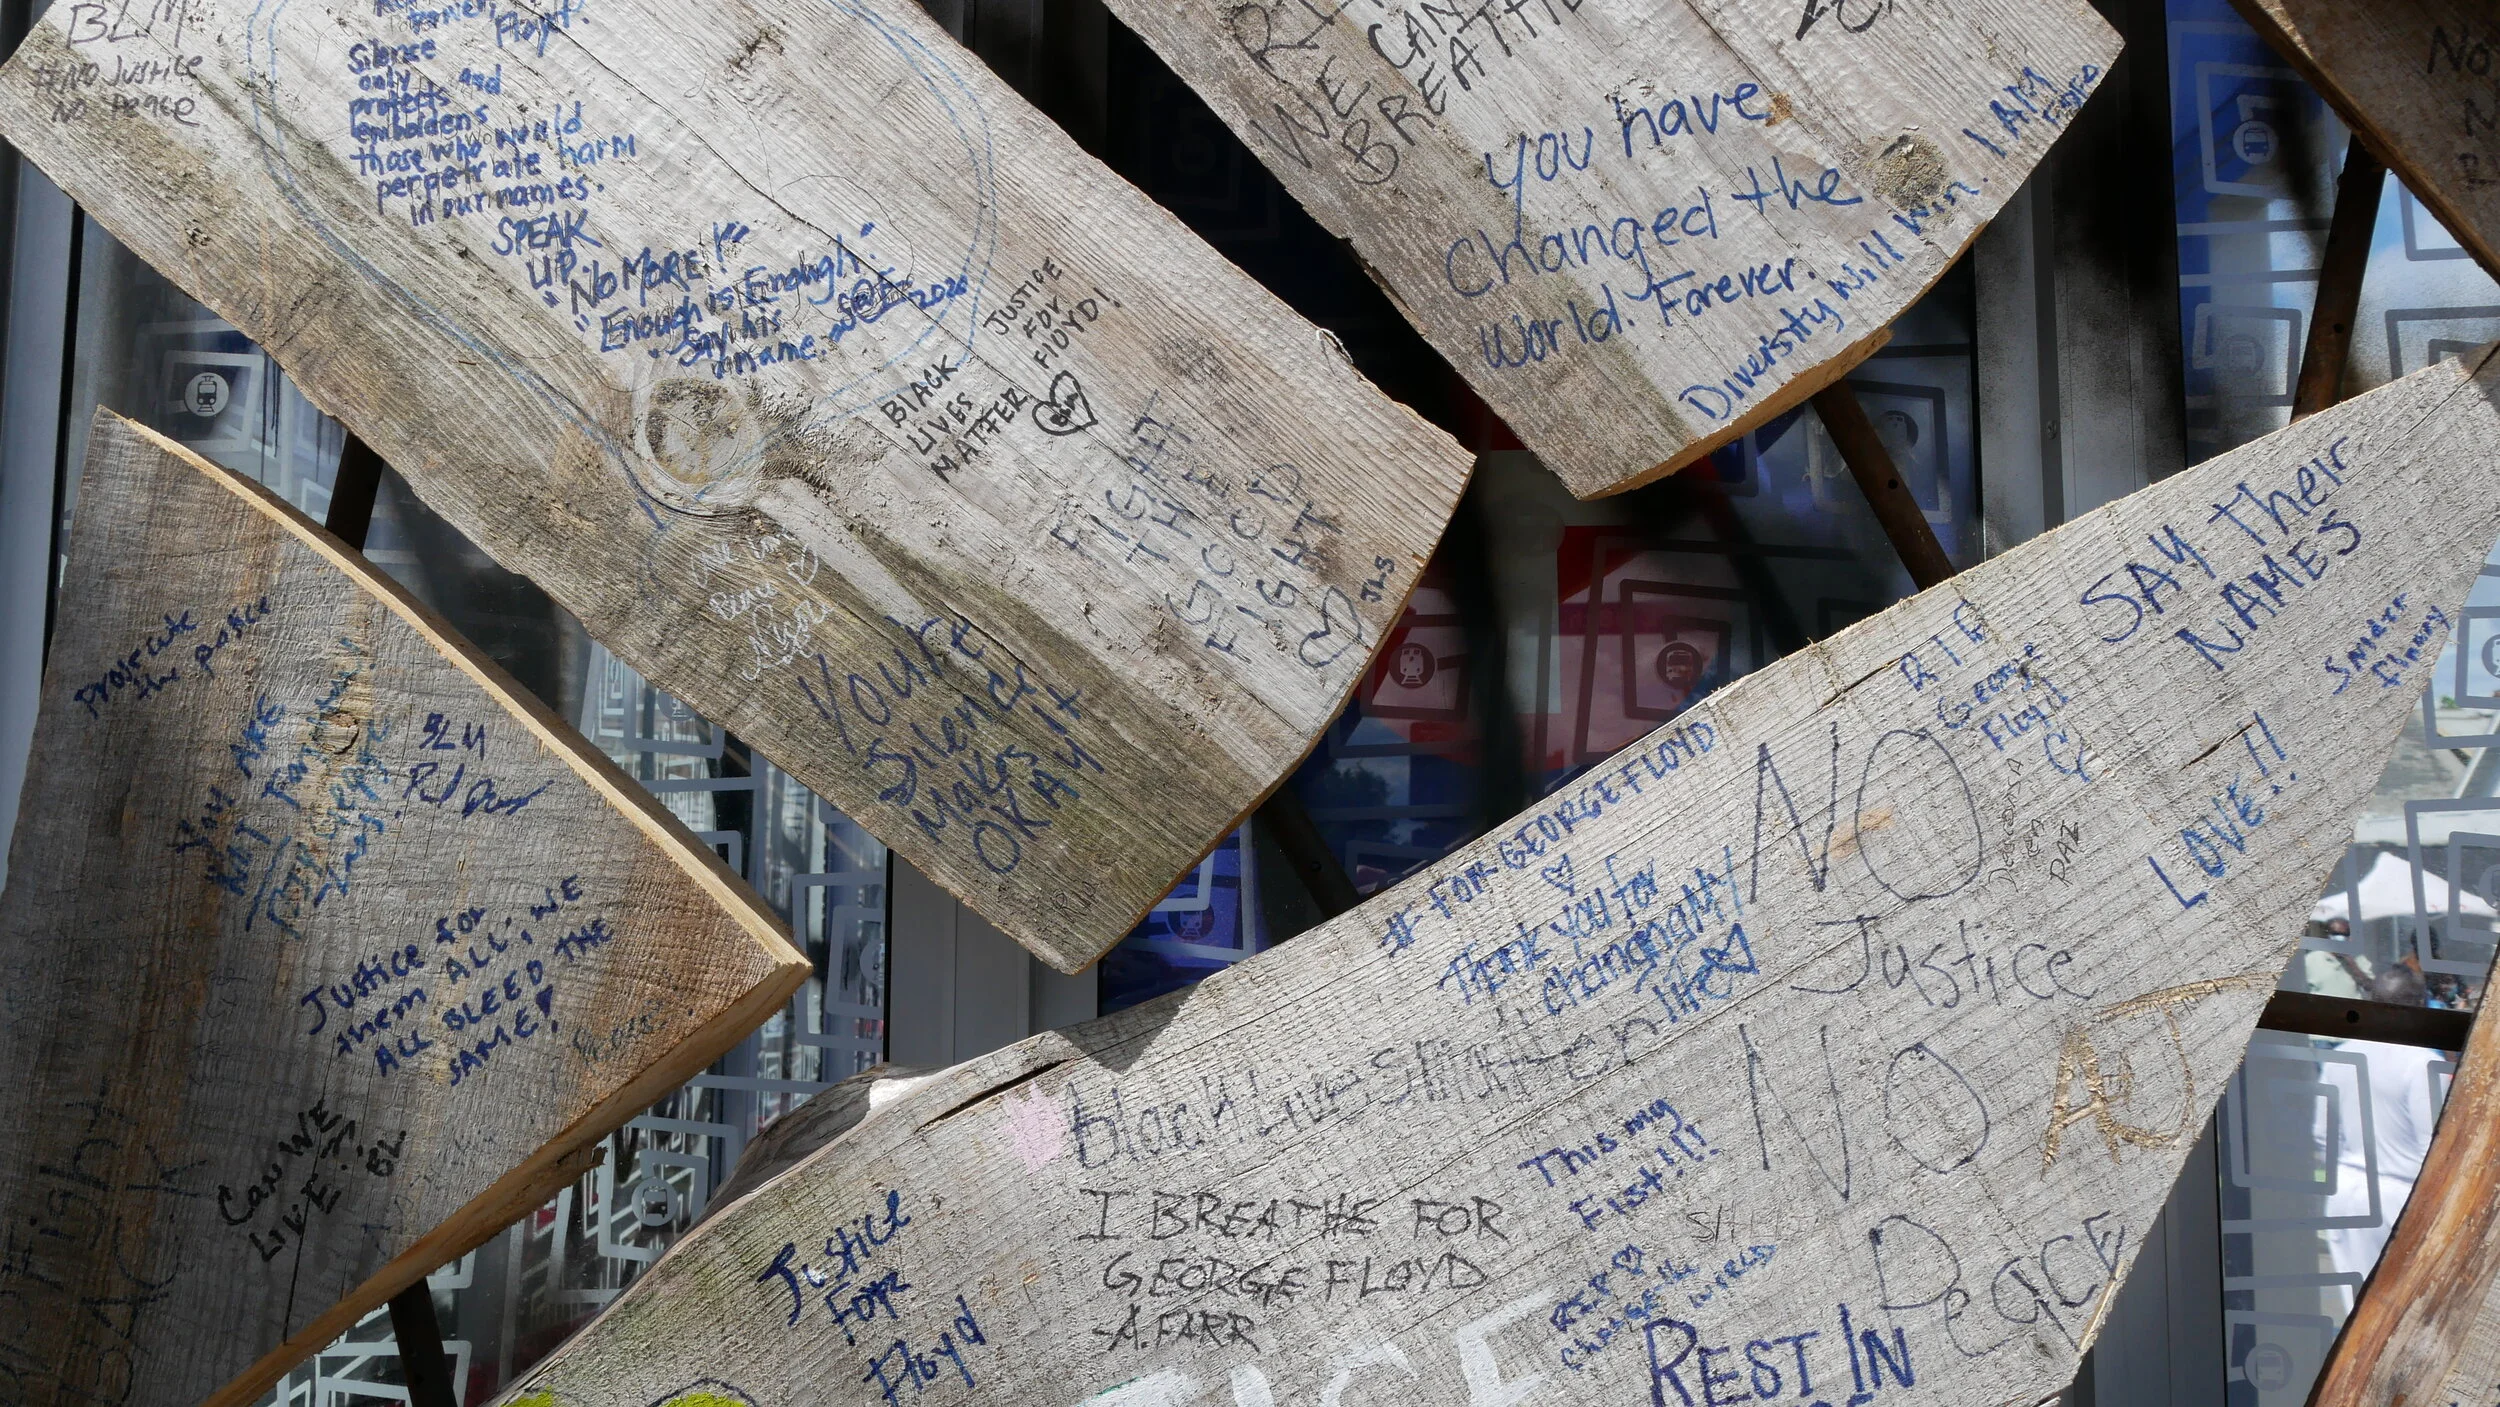 BLM
#NO JUSTICE
NO PEACE
Floyd.
Silence
only
protects and
emboldens
those who would
perpetrate harm
in our names.
SPEAK
UP.
"NO MORE!"
"Enough is Enough!"
"Say his
name."
2020
BLACK
LIVES
MATTER
JUSTICE
FOR
FlOYD!
FIGHT
THE
GOOD
FIGHT
One Love
Peace
Nicole
You're
Silence
Makes It
OKAY
WE CAN'T
BREATHE
you have
Changed the
World. Forever.
Diversity Will Win.
I AM
prosecute
the police
You ARE
NOT
BLM
Justice for
them ALL, WE
ALL BLEED THE
SAME!
Can WE
LIVE?!
BL
SAY Their
NAMES
LOVE!!
RIP
George
Floyd
# FOR GEORGE FLOYD
Thank you for
changing MY
life
NO
Justice
NO
Peace
AJ
Black Lives Matter
This my
Fist!!!
I BREATHE FOR
GEORGE FLOYD
-A. FARR
Justice
FOR
Floyd
R.I.P
Change the
WORLD
REST IN